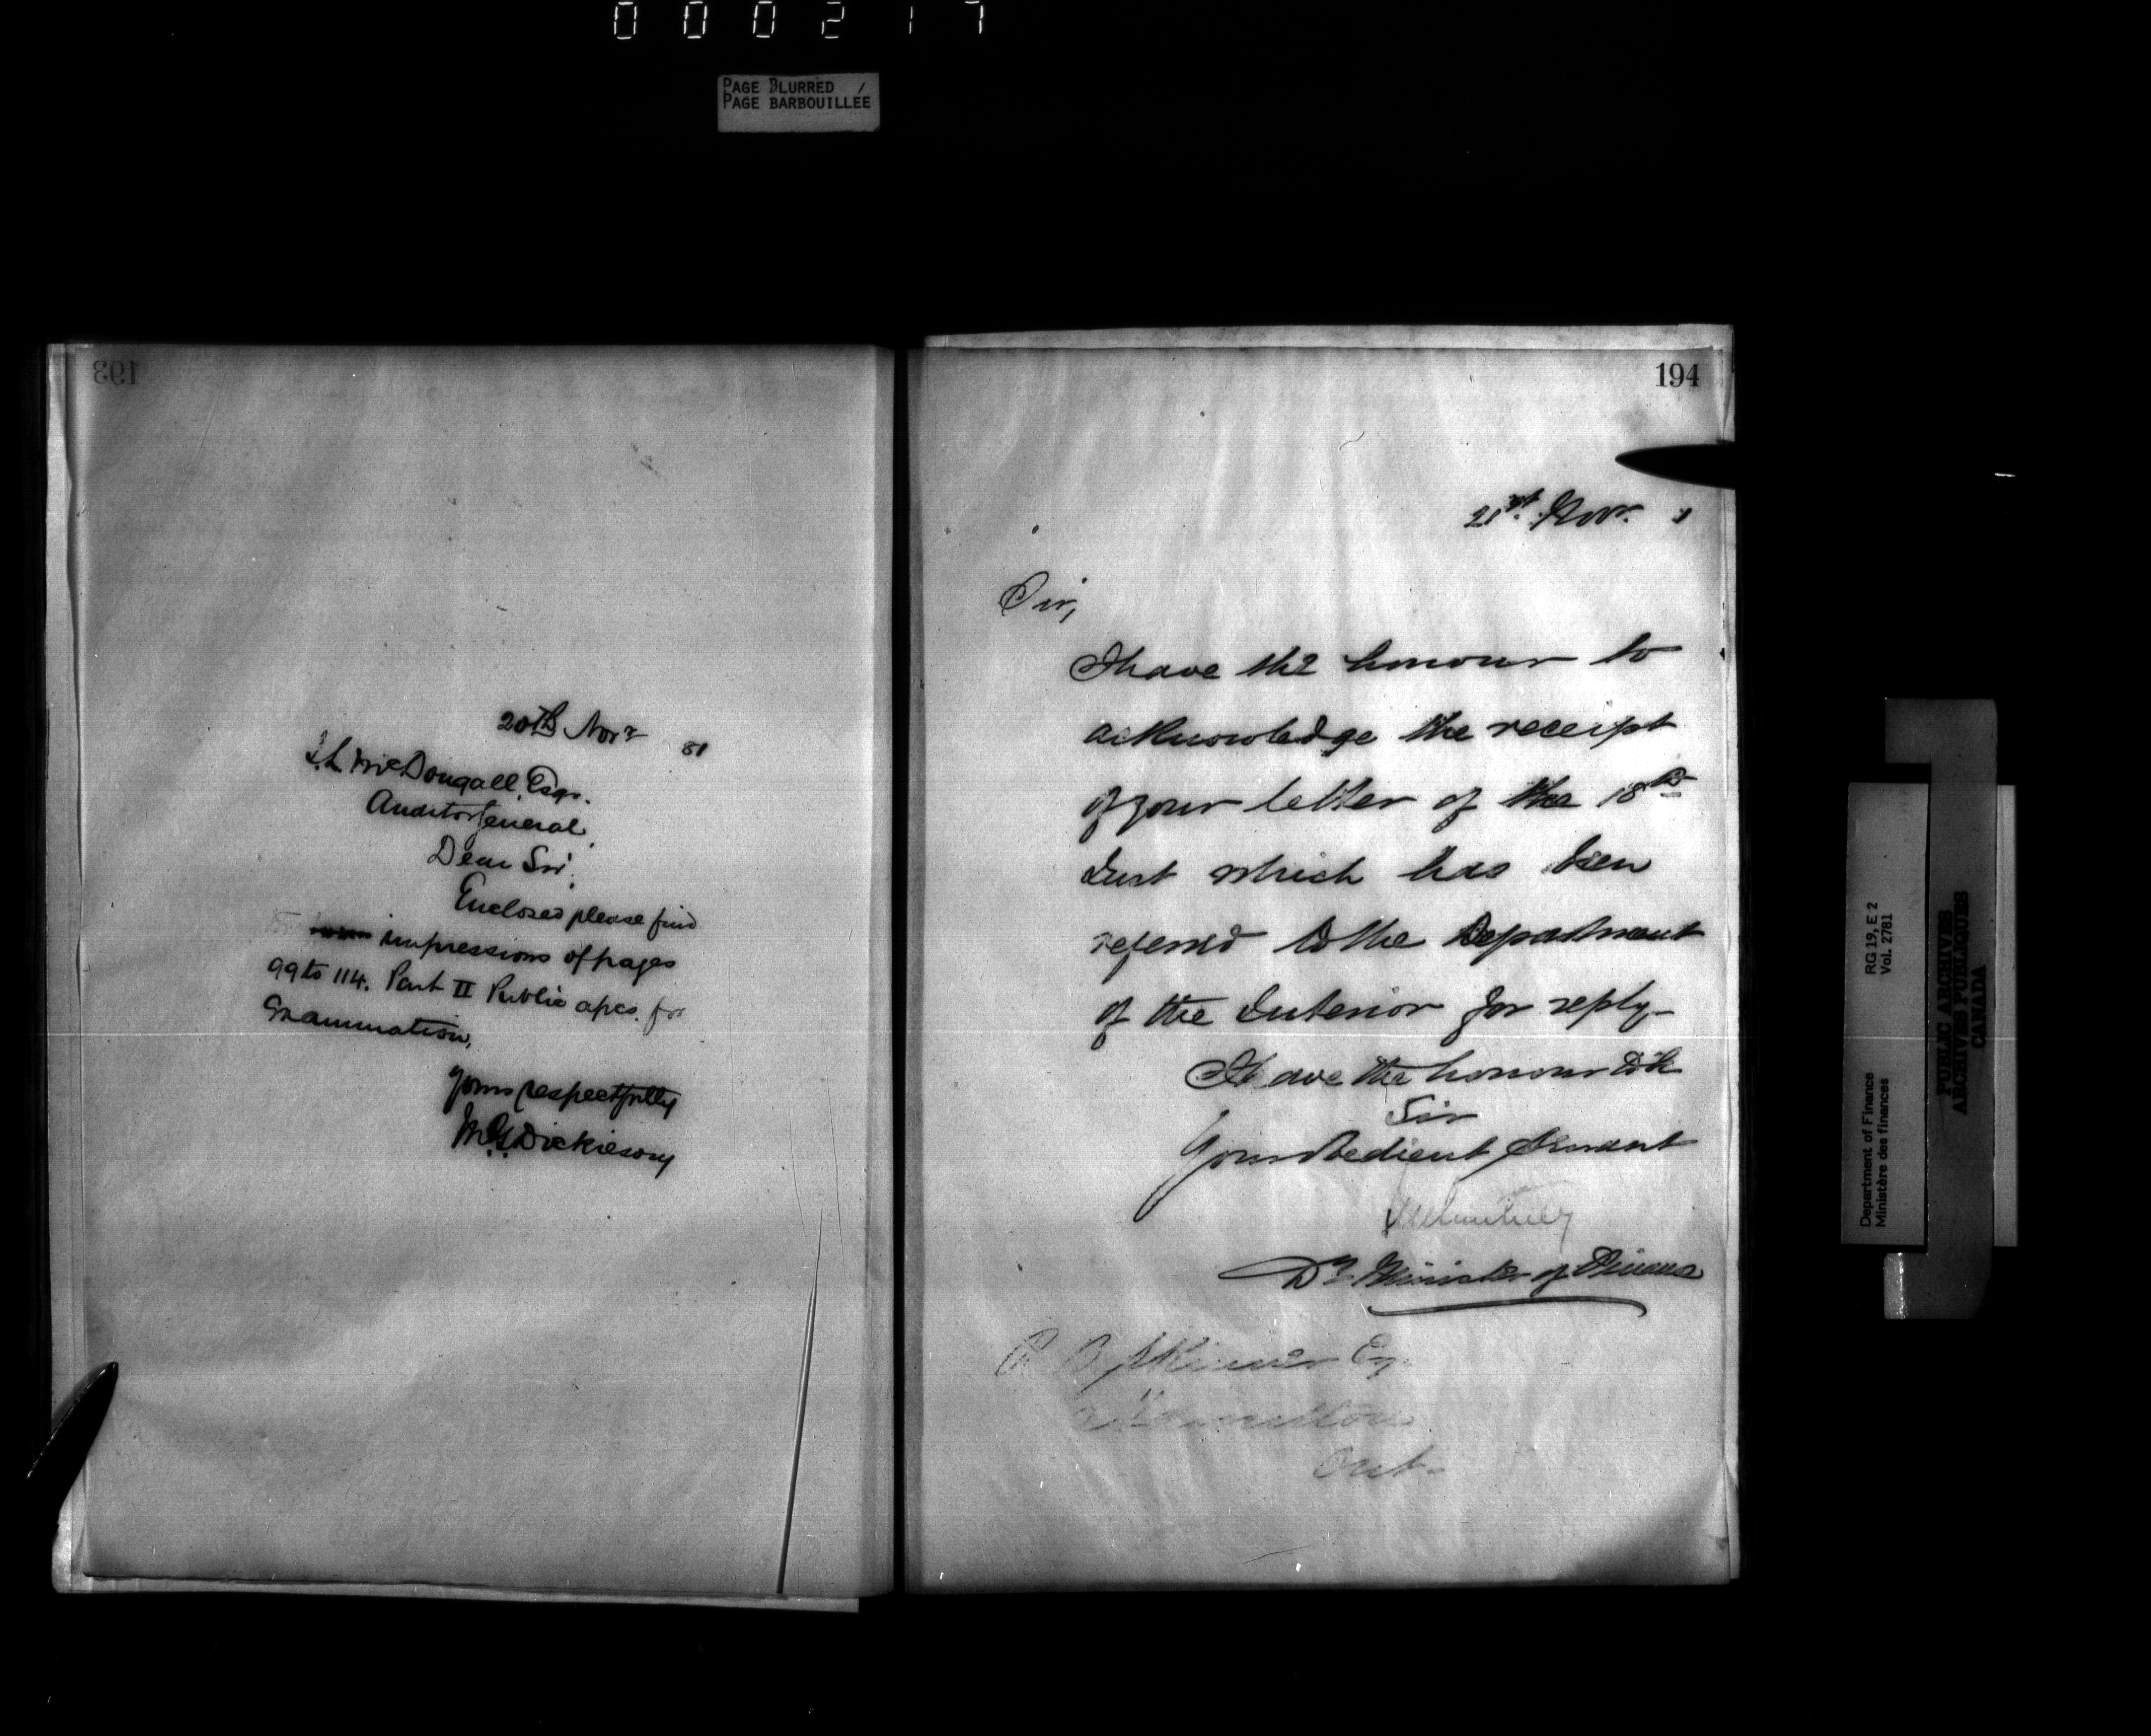 000217
PAGE BLURRED /
PAGE BARBOUILLÉE
193
20th Novr 81
J.L. McDougall, Esqr.
Auditor General,
Dear Sir,
Enclosed please find
impressions of pages
99 to 114. Part II Public apcs. for
Examination,
Yours respectfully
M.G. Dickieson
194
21st Novr. 1
Sir,
I have the honour to
acknowledge the receipt
of your letter of the 18th
Inst which has been
referred to the Department
of the Interior for reply-
I have the honour to be
Sir
Your obedient servant
Dy. Minister of Finance
R B Skinner Esq.
Hamilton
Ont-
Department of Finance
Ministère des finances
RG 19, E 2
Vol. 2781
PUBLIC ARCHIVES
ARCHIVES PUBLIQUES
CANADA